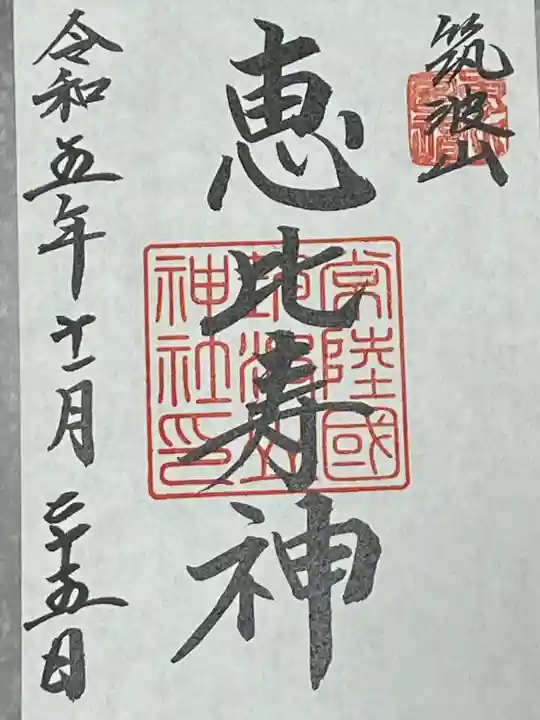 筑波山
恵比寿神
常陸國
筑波山
神社印
令和五年十一月二十五日